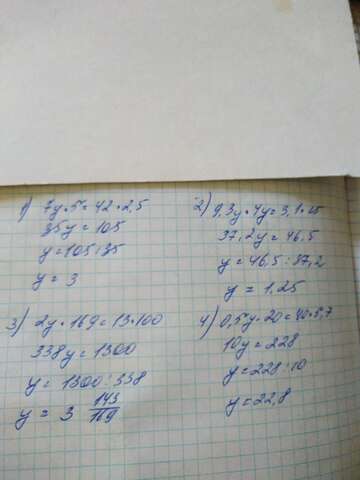 1) 7y · 5 = 42 · 2,5
35y = 105
y = 105 : 35
y = 3
2) 9,3y · 4y = 3,1 · 15
37,2y = 46,5
y = 46,5 : 37,2
y = 1,25
3) 2y · 169 = 13 · 100
338y = 1300
y = 1300 : 338
y = 3 143/169
4) 0,5y · 20 = 40 · 5,7
10y = 228
y = 228 : 10
y = 22,8